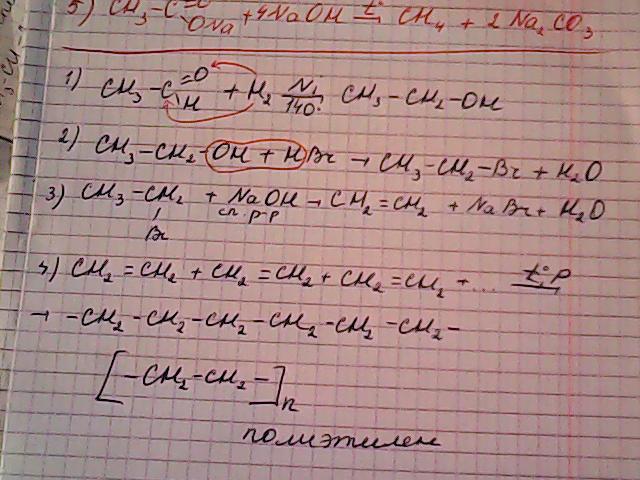 5) CH₃-C(=O)ONa + 4NaOH t° CH₄ + 2 Na₂CO₃
1) CH₃-C(=O)H + H₂ Ni 140° CH₃-CH₂-OH
2) CH₃-CH₂-OH + HBr → CH₃-CH₂-Br + H₂O
3) CH₃-CH₂ + NaOH → CH₂=CH₂ + NaBr + H₂O
Br сп. р-р
4) CH₂=CH₂ + CH₂=CH₂ + CH₂=CH₂ + ... t°, P
→ -CH₂-CH₂-CH₂-CH₂-CH₂-CH₂-
[-CH₂-CH₂-]n
полиэтилен